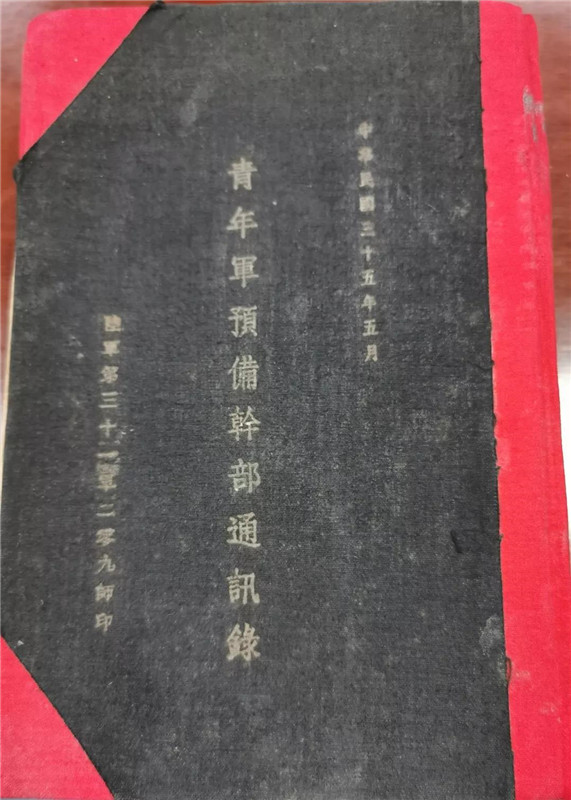 中華民國三十五年五月
青年軍預備幹部通訊錄
陸軍第三十一軍二零九師印